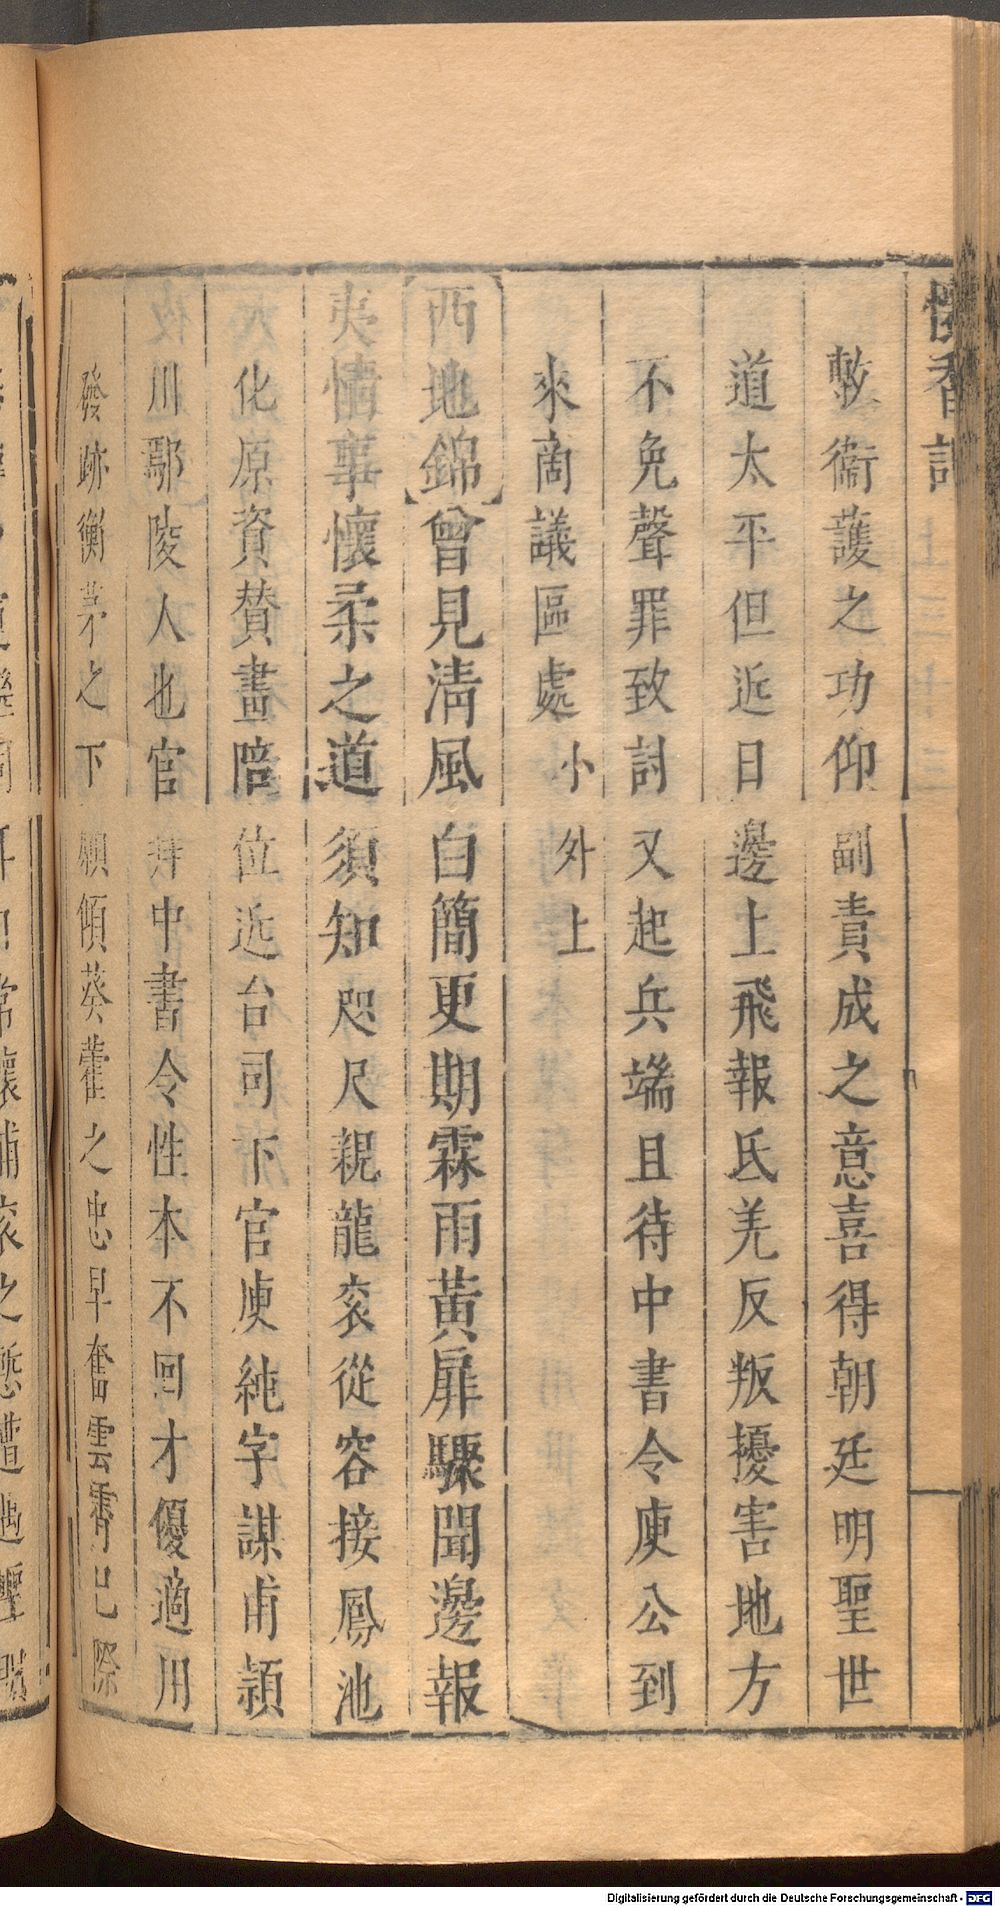 懷香記
敷衛護之功仰副責成之意喜得朝廷明聖世
道太平但近日邊上飛報氐羌反叛擾害地方
不免聲罪致討又起兵端且待中書令庾公到
來商議區處小外上
西地錦曾見淸風白簡更期霖雨黃扉驟聞邊報
夷情事懷柔之道須知咫尺親龍衮從容接鳳池
化原資贊畫陪位近台司下官庾純字謀甫潁
川鄢陵人也官拜中書令性本不回才優適用
發跡衡茅之下願傾葵藿之忠早奮雲霄已際
Digitalisierung gefördert durch die Deutsche Forschungsgemeinschaft - DFG